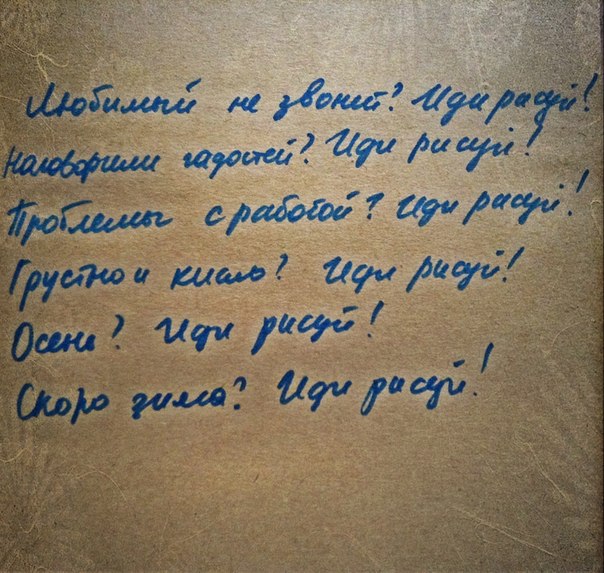 Любимый не звонит? Иди рисуй!
Наговорили гадостей? Иди рисуй!
Проблемы с работой? Иди рисуй!
Грустно и кисло? Иди рисуй!
Осень? Иди рисуй!
Скоро зима? Иди рисуй!